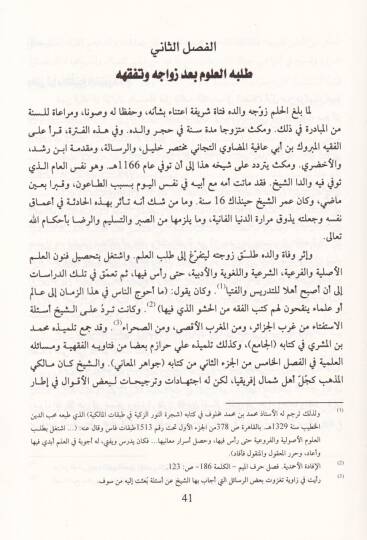 الفصل الثاني
طلبه العلوم بعد زواجه وتفقهه
لما بلغ الحلم زوّجه والده فتاة شريفة اعتناء بشأنه، وحفظا له وصونا، ومراعاة للسنة
من المبادرة في ذلك. ومكث متزوجا مدة سنة في حجر والده. وفي هذه الفترة، قرأ على
الفقيه المبروك بن أبي عافية المضاوي التجاني مختصر خليل، والرسالة، ومقدمة ابن رشد،
والأخضري. ومكث يتردد على شيخه هذا إلى أن توفي عام 1166هـ. وهو نفس العام الذي
توفي فيه والدا الشيخ. فقد ماتت أمه مع أبيه في نفس اليوم بسبب الطاعون، وقبرا بعين
ماضي، وكان عمر الشيخ حينذاك 16 سنة. وما من شك أنه تأثر بهذه الحادثة في أعماق
نفسه وجعلته يذوق مرارة الدنيا الفانية، وما يلزمها من الصبر والتسليم والرضا بأحكام الله
تعالى.
وإثر وفاة والده طلّق زوجته ليتفرّغ إلى طلب العلم. واشتغل بتحصيل فنون العلم
الأصلية والفرعية، الشرعية واللغوية والأدبية، حتى رأس فيها، ثم تعمّق في تلك الدراسات
إلى أن أصبح أهلا للتدريس والفتيا(1). وكان يقول: (ما أحوج الناس في هذا الزمان إلى عالم
أو علماء ينقحون لهم كتب الفقه من الحشو الذي فيها) (2). وكانت تردُ على الشيخ أسئلة
الاستفتاء من غرب الجزائر، ومن المغرب الأقصى، ومن الصحراء(3). وقد جمع تلميذه محمد
بن المشري في كتابه (الجامع)، وكذلك تلميذه علي حرازم بعضا من فتاويه الفقهية ومسائله
العلمية في الفصل الخامس من الجزء الثاني من كتابه (جواهر المعاني). والشيخ كان مالكي
المذهب كجُلّ أهل شمال إفريقيا، لكن له اجتهادات وترجيحات لبعض الأقوال في إطار
(1) ولذلك ترجم له الأستاذ محمد بن محمد مخلوف في كتابه (شجرة النور الزكية في طبقات المالكية) الذي طبعه محب الدين
الخطيب سنة 1329هـ بالقاهرة ص 378من الجزء الأول تحت رقم 1513طبقات فاس وقال عنه: (... اشتغل بطلب
العلوم الأصولية والفروعية حتى رأس فيها، وحصل أسرار معانيها... فكان يدرس ويفتي، له أجوبة في العلم أبدى فيها
وأعاد، وحرر المعقول والمنقول فأفاد).
(2) الإفادة الأحمدية. فصل حرف الميم – الكلمة 186- ص: 123.
(3) رأيت في زاوية تغزوت بعض الرسائل التي أجاب بها الشيخ عن أسئلة بُعثت إليه من سوف.
41